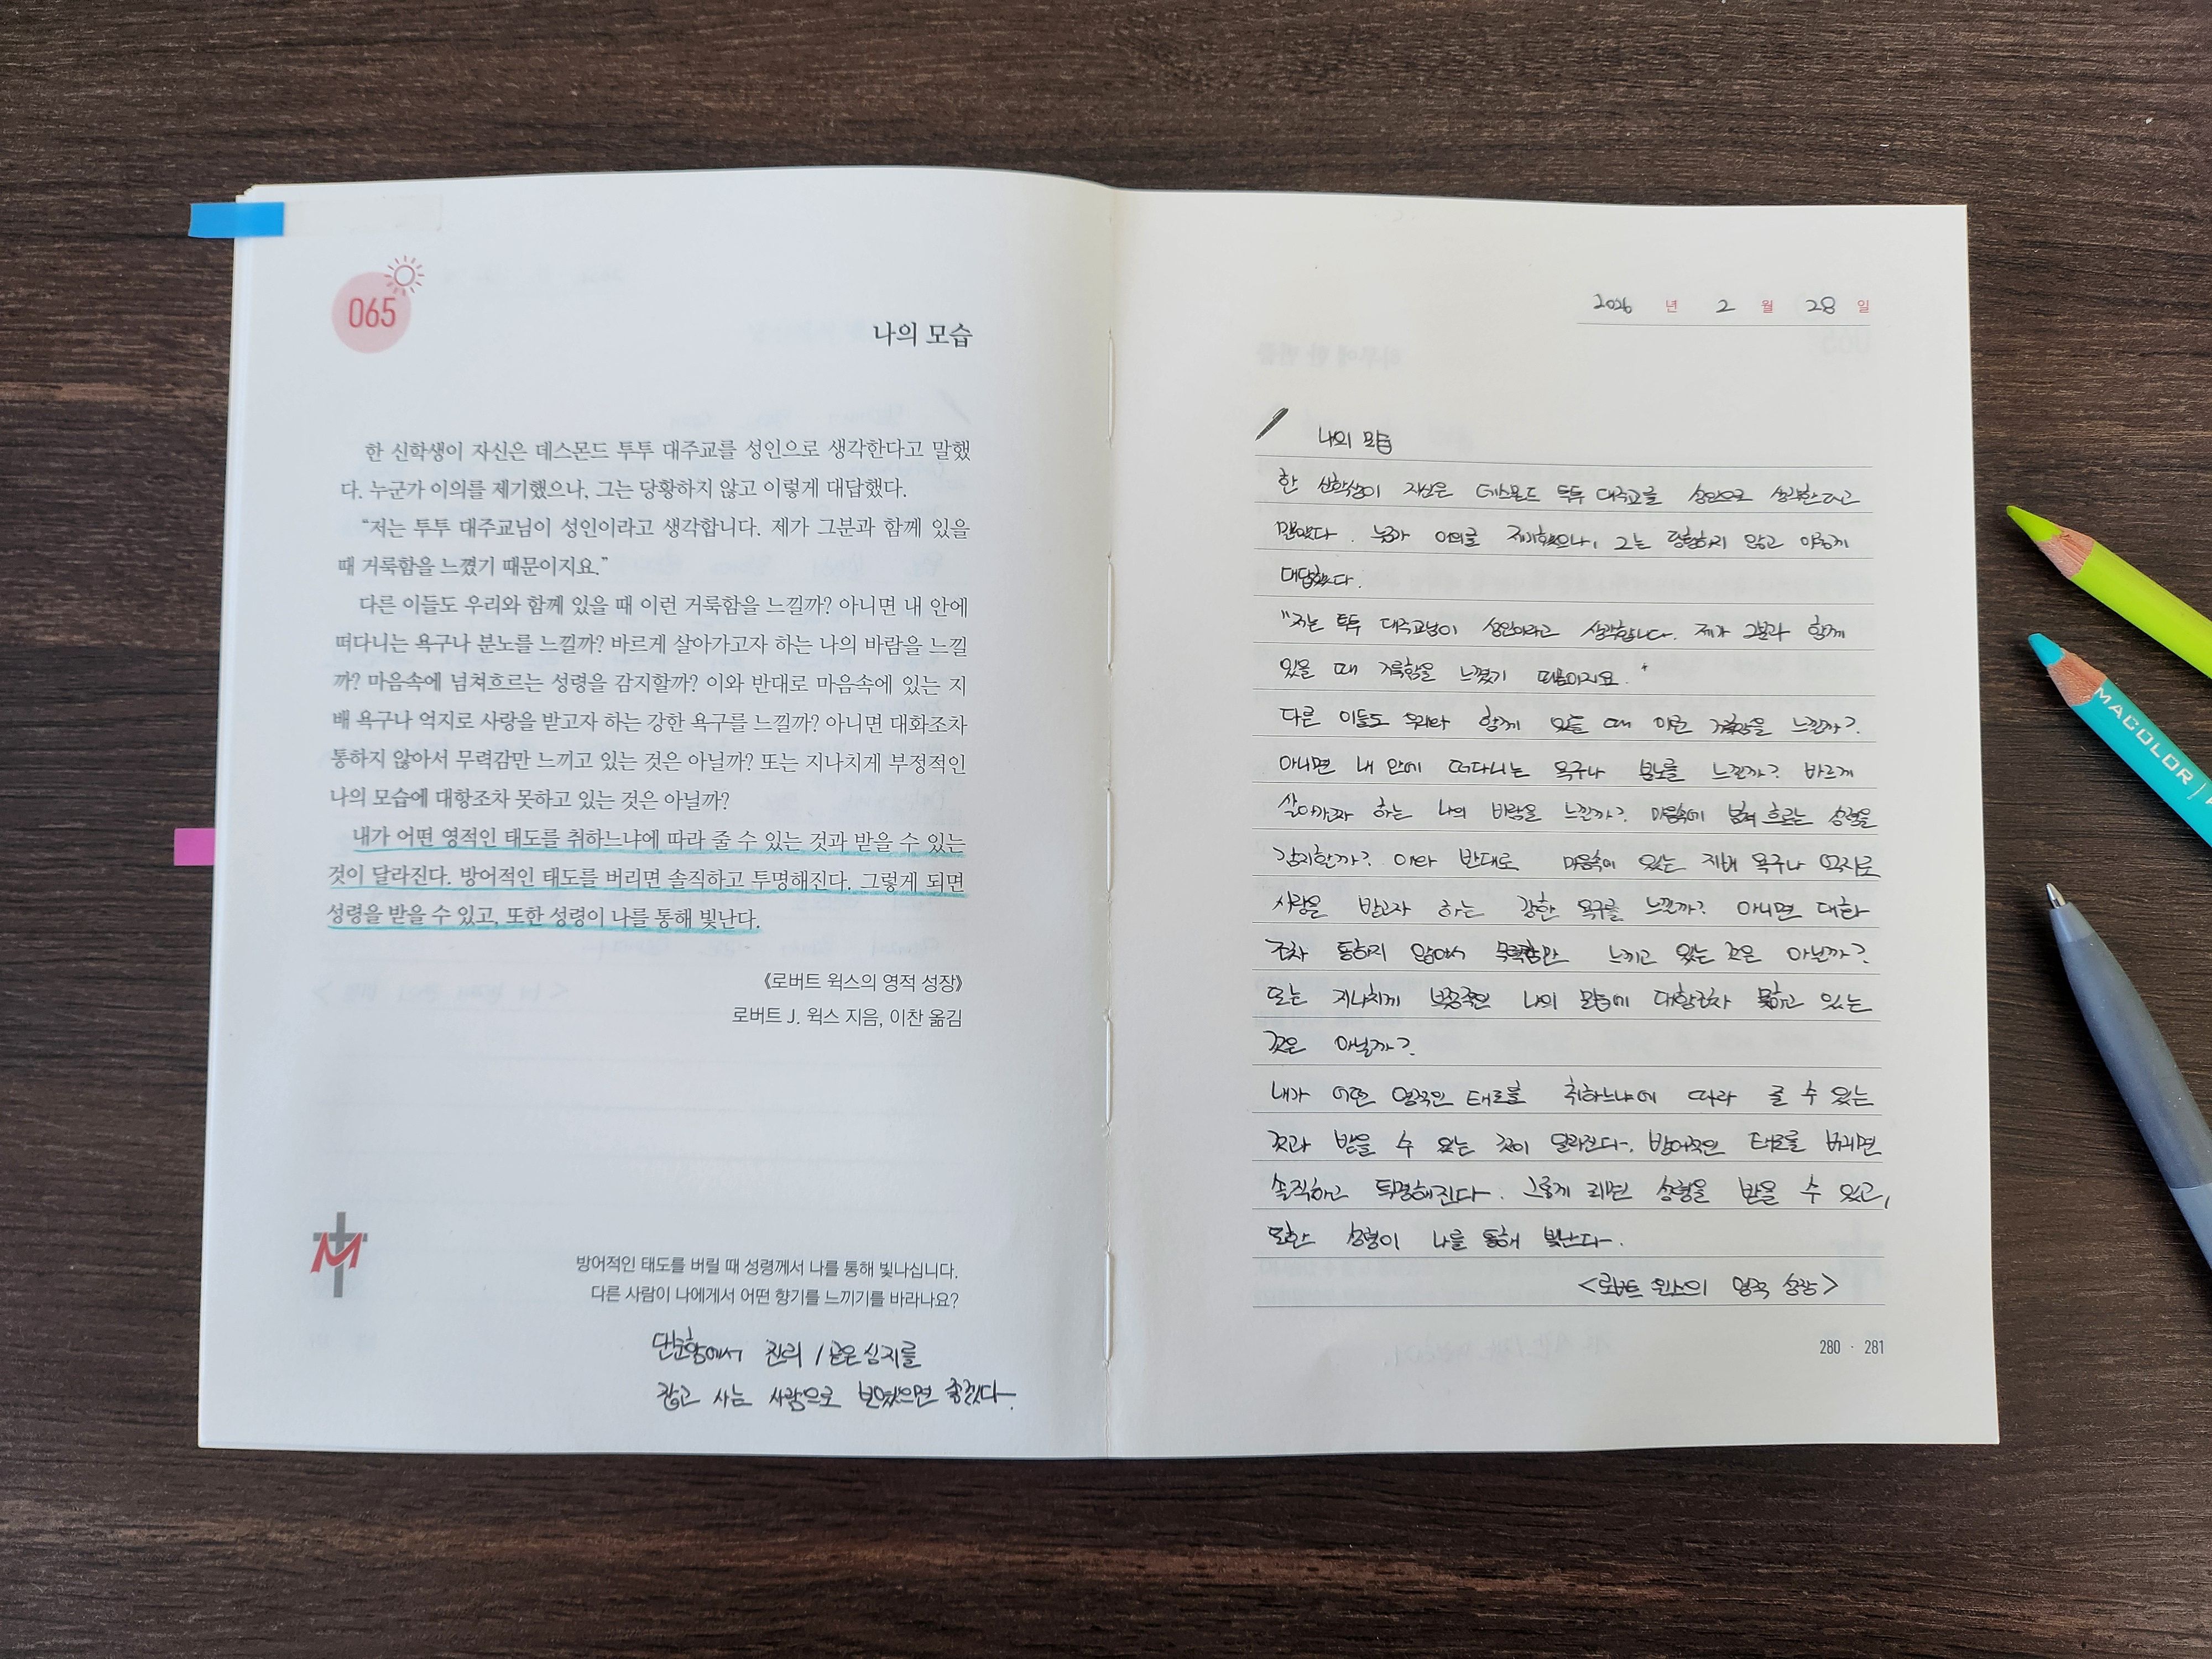 065
나의 모습
한 신학생이 자신은 데스몬드 투투 대주교를 성인으로 생각한다고 말했
다. 누군가 이의를 제기했으나, 그는 당황하지 않고 이렇게 대답했다.
“저는 투투 대주교님이 성인이라고 생각합니다. 제가 그분과 함께 있을
때 거룩함을 느꼈기 때문이지요.”
다른 이들도 우리와 함께 있을 때 이런 거룩함을 느낄까? 아니면 내 안에
떠다니는 욕구나 분노를 느낄까? 바르게 살아가고자 하는 나의 바람을 느낄
까? 마음속에 넘쳐흐르는 성령을 감지할까? 이와 반대로 마음속에 있는 지
배 욕구나 억지로 사랑을 받고자 하는 강한 욕구를 느낄까? 아니면 대화조차
통하지 않아서 무력감만 느끼고 있는 것은 아닐까? 또는 지나치게 부정적인
나의 모습에 대항조차 못하고 있는 것은 아닐까?
내가 어떤 영적인 태도를 취하느냐에 따라 줄 수 있는 것과 받을 수 있는
것이 달라진다. 방어적인 태도를 버리면 솔직하고 투명해진다. 그렇게 되면
성령을 받을 수 있고, 또한 성령이 나를 통해 빛난다.
《로버트 윅스의 영적 성장》
로버트 J. 윅스 지음, 이찬 옮김
M
방어적인 태도를 버릴 때 성령께서 나를 통해 빛나십니다.
다른 사람이 나에게서 어떤 향기를 느끼기를 바라나요?
단순함에서 진리 / 곧은 심지를
잡고 사는 사람으로 보였으면 좋겠다.
2026 년 2 월 28 일
나의 모습
한 신학생이 자신은 데스몬드 투투 대주교를 성인으로 생각한다고
말했다. 누군가 이의를 제기했으나, 그는 당황하지 않고 이렇게
대답했다.
"저는 투투 대주교님이 성인이라고 생각합니다. 제가 그분과 함께
있을 때 거룩함을 느꼈기 때문이지요."
다른 이들도 우리와 함께 있을 때 이런 거룩함을 느낄까?
아니면 내 안에 떠다니는 욕구나 분노를 느낄까? 바르게
살아가고자 하는 나의 바람을 느낄까? 마음속에 넘쳐 흐르는 성령을
감지할까? 이와 반대로 마음속에 있는 지배 욕구나 억지로
사랑을 받고자 하는 강한 욕구를 느낄까? 아니면 대화
조차 통하지 않아서 무력감만 느끼고 있는 것은 아닐까?
또는 지나치게 부정적인 나의 모습에 대항조차 못하고 있는
것은 아닐까?
내가 어떤 영적인 태도를 취하느냐에 따라 줄 수 있는
것과 받을 수 있는 것이 달라진다. 방어적인 태도를 버리면
솔직하고 투명해진다. 그렇게 되면 성령을 받을 수 있고,
또한 성령이 나를 통해 빛난다.
<로버트 윅스의 영적 성장>
280 · 281
MACOLOR